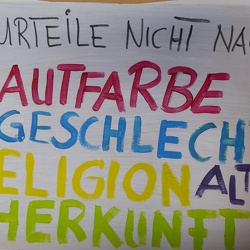 URTEILE NICHT NA
AUTFARBE
GESCHLECH
ELIGION ALT
HERKUNFT